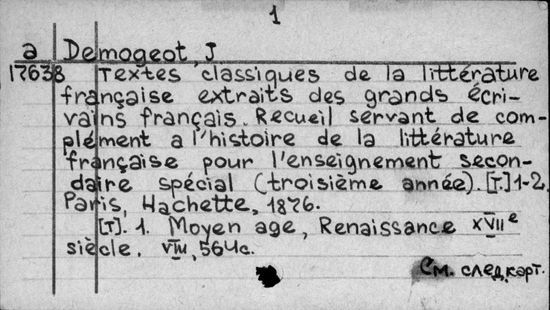 1
a Demogeot, J
17638 Textes classiques de la littérature
française extraits des grands écri-
vains français. Recueil servant de com-
plément a l'histoire de la littérature
française pour l'enseignement secon-
daire spécial (troisième année). [T.] 1-2.
Paris, Hachette, 1876.
[T]. 1. Moyen age, Renaissance XVIIe
siècle. VIII, 564c.
См. след.карт.